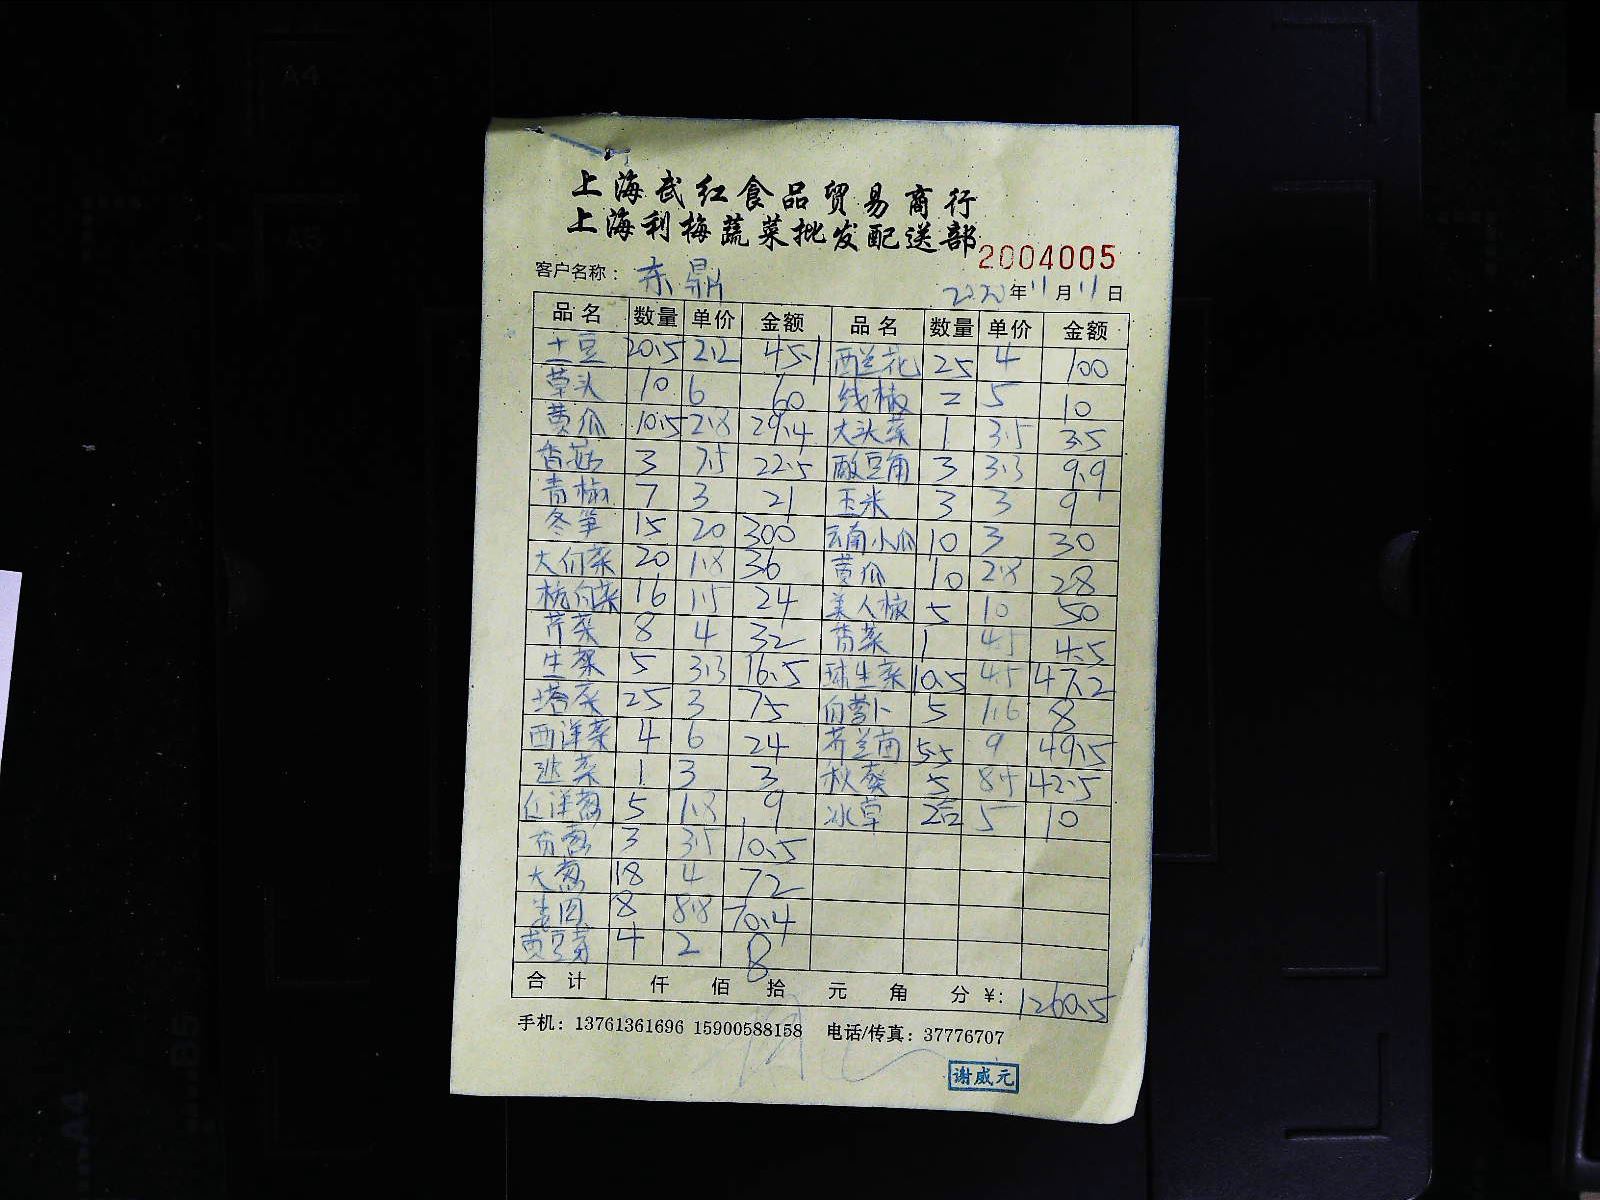 上海武红食品贸易商行
上海利梅蔬菜批发配送部
2004005
客户名称：东鼎 2020年11月11日
品名 数量 单价 金额 品名 数量 单价 金额
土豆 20.5 2.2 45.1 西兰花 25 4 100
草头 10 6 60 线椒 2 5 10
黄瓜 10.5 2.8 29.4 大头菜 1 3.5 3.5
香菇 3 7.5 22.5 酸豆角 3 3.3 9.9
青椒 7 3 21 玉米 3 3 9
冬笋 15 20 300 云南小瓜 10 3 30
大白菜 20 1.8 36 黄瓜 10 2.8 28
杭白菜 16 1.5 24 美人椒 5 10 50
芹菜 8 4 32 香菜 1 4.5 4.5
生菜 5 3.3 16.5 球生菜 10.5 4.5 47.2
塔菜 25 3 75 白萝卜 5 1.6 8
西洋菜 4 6 24 芥兰苗 5.5 9 49.5
3 3 秋葵 5 8.5 42.5
红洋葱 5 1.8 9 冰草 2 5 10
香葱 3 3.5 10.5
大葱 18 4 72
8 8.8 70.4
黄豆芽 4 2 8
合计 仟 佰 拾 元 角 分 ¥: 1260.5
手机：13761361696 15900588158 电话/传真：37776707
谢威元